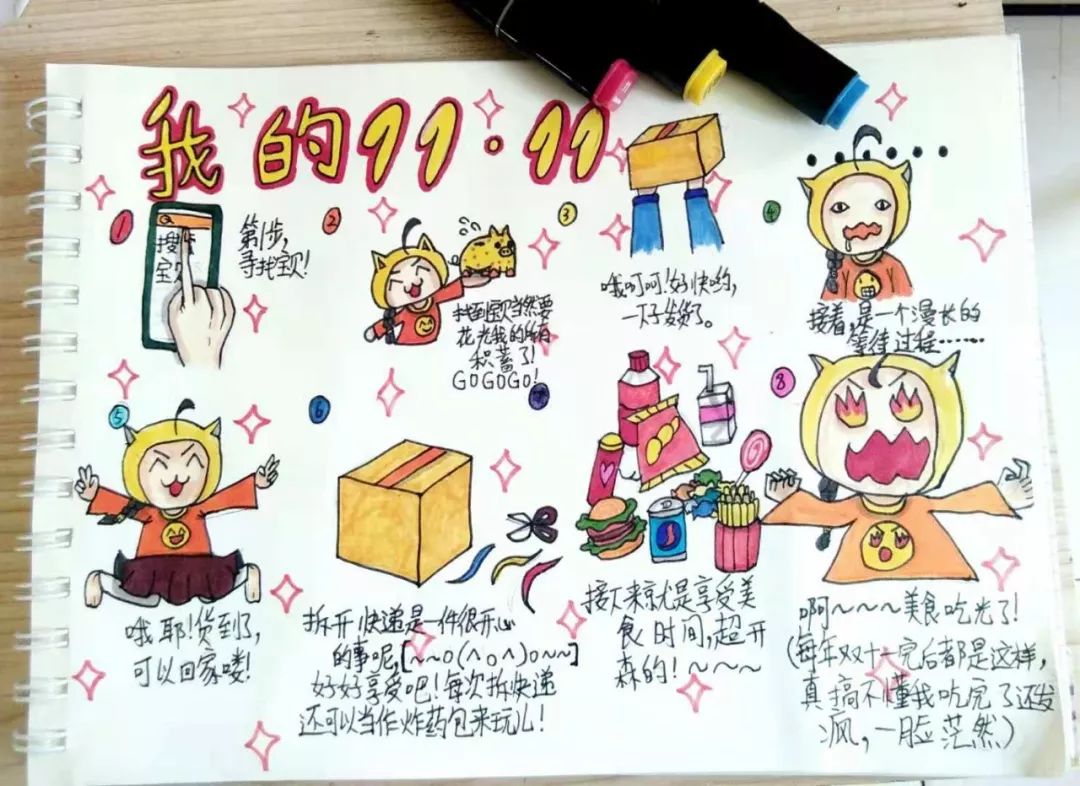 我的11·11
1
搜
宝贝
第1步,
寻找宝贝!
2
找到宝贝当然要
花光我的所有
积蓄了!
GOGOGO!
3
哦呵呵!好快哟,
一下子发货了。
4
接着,是一个漫长的
等待过程……
5
哦耶!货到了,
可以回家喽!
6
拆开快递是一件很开心
的事呢,[~~o(^o^)o~~]
好好享受吧!每次拆快递
还可以当作炸药包来玩儿!
7
接下来就是享受美
食时间,超开
森的!~~~
8
啊~~~美食吃光了!
(每年双十一完后都是这样,
真搞不懂我吃完了还发
疯,一脸茫然)